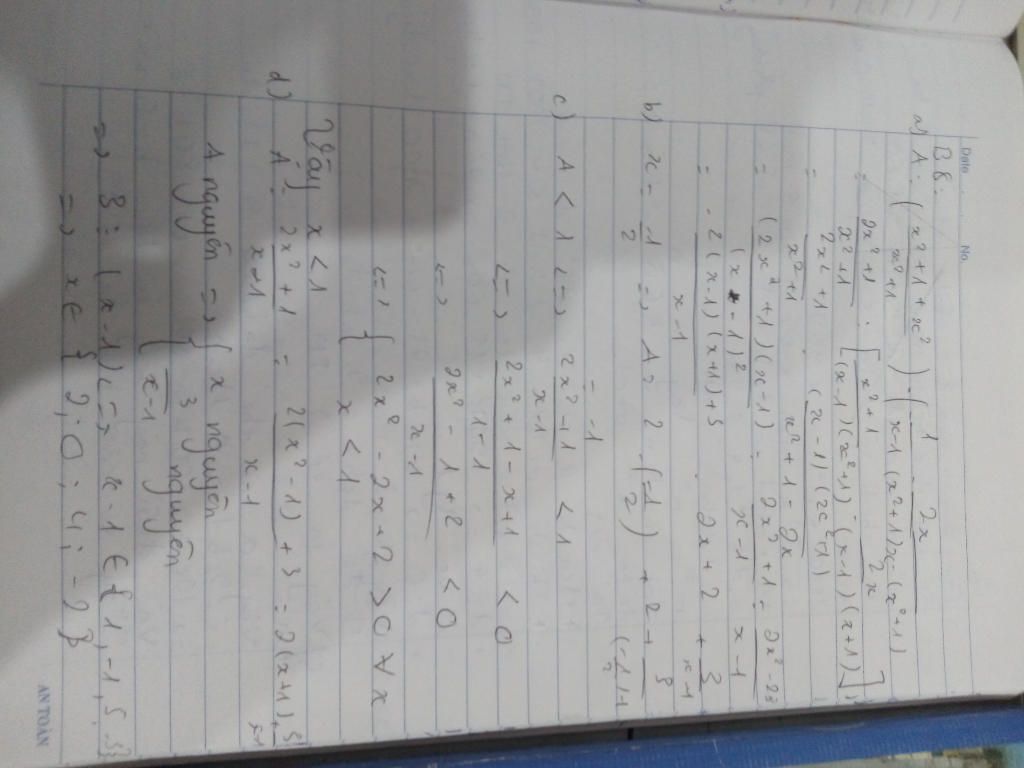 Date No.
B8.
a) A = ( x² + 1 + x² / x² + 1 ) : ( 1 / x-1 - 2x / (x²+1)x - (x²+1) )
= 2x² + 1 / x² + 1 : [ x² + 1 / (x-1)(x²+1) - 2x / (x-1)(x+1) ]
= 2x² + 1 / x² + 1 : x² + 1 - 2x / (x-1)(x²+1)
= (2x² + 1)(x-1) / (x-1)² = 2x² + 1 / x-1 = 2x² - 2+3 / x-1
= 2(x-1)(x+1)+3 / x-1 = 2x + 2 + 3 / x-1
b) x = -1 / 2 => A = 2 . (-1 / 2) + 2 + 3 / (-1 / 2)-1
= -1
c) A < 1 <=> 2x² + 1 / x-1 < 1
<=> 2x² + 1 - x + 1 / x-1 < 0
<=> 2x² - 1 + 2 / x-1 < 0
<=> { 2x² - 2x + 2 > 0 ∀ x
x < 1
Vậy x < 1
d) A = 2x² + 1 / x-1 = 2(x² - 1) + 3 / x-1 = 2(x+1) + 3 / x-1
A nguyên => { x nguyên
3 / x-1 nguyên
=> 3 ⋮ (x-1) <=> x-1 ∈ { 1, -1, 3, -3}
=> x ∈ { 2 ; 0 ; 4 ; -2 }
AN TOÀN